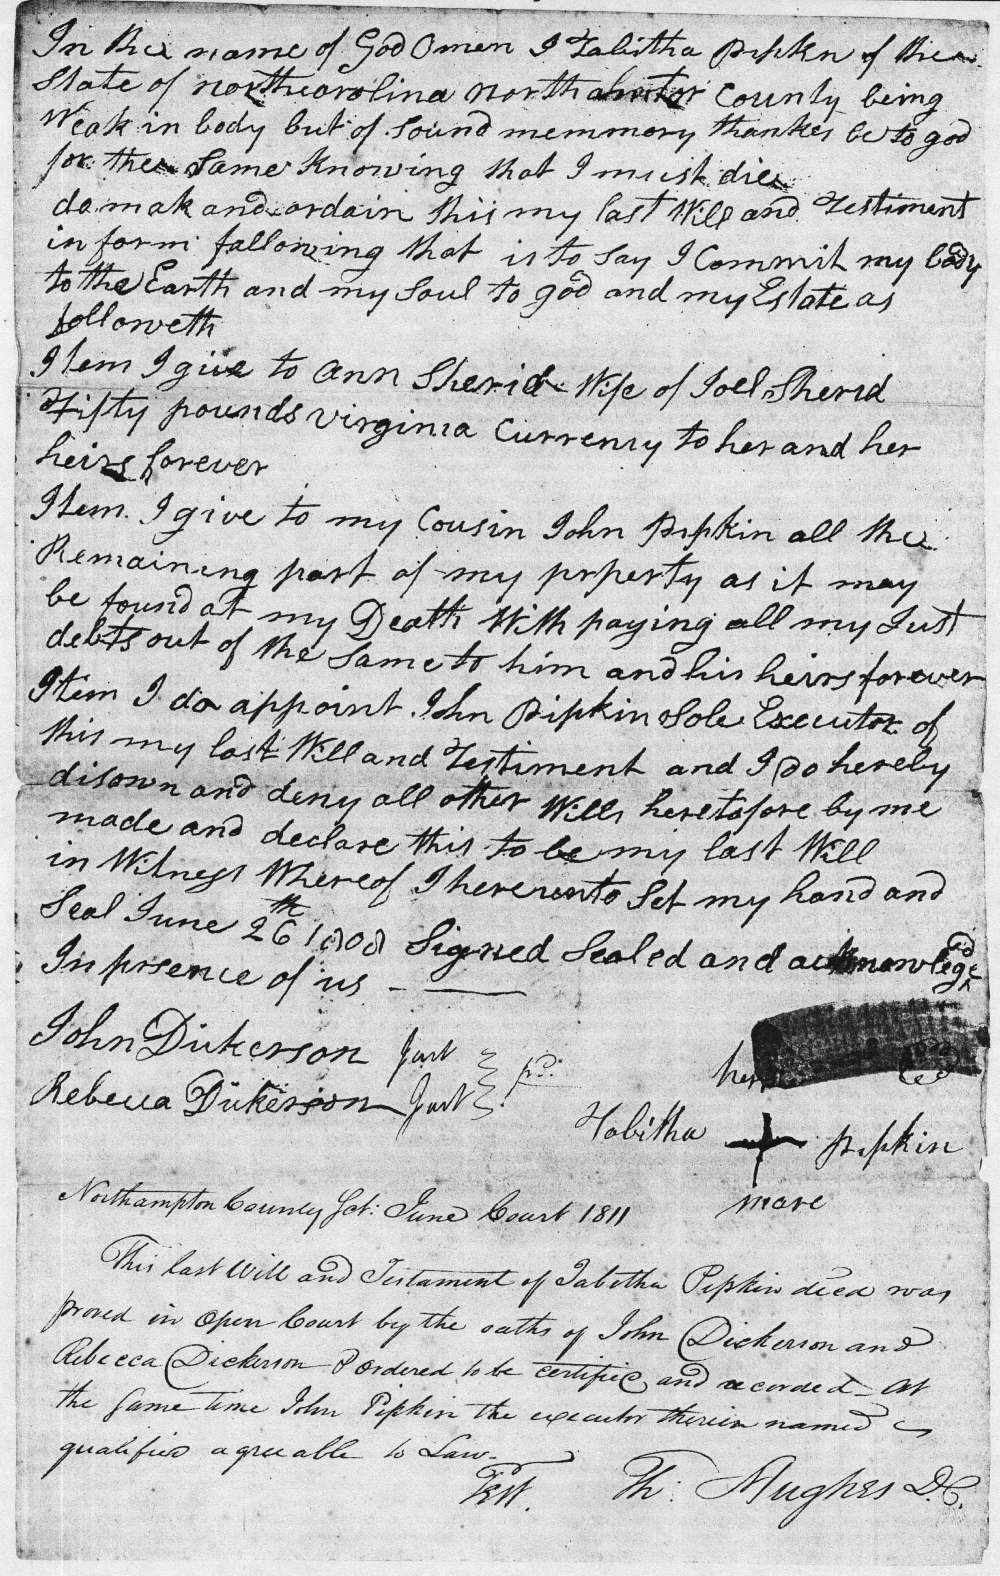 In the name of God Omen I Tabitha Pipkn of the
State of northcorolina County being
Weak in body but of Sound memmory thankes be to god
for the Same Knowing that I must die
do mak and ordain this my last Will and Testiment
in form fallowing that is to say I Commit my body
to the Earth and my Soul to god and my Estate as
followeth
Item I give to Ann Sherid Wife of Joel Sherid
Fifty pounds Virginia Currency to her and her
heirs forever
Item. I give to my Cousin John Pipkin all the
Remaining part of my prperty as it may
be found at my Death With paying all my Just
debts out of the Same to him and his heirs forever
Item I do appoint John Pipkin Sole Executor of
this my last Will and Testiment and I do hereby
disown and deny all other Wills heretofore by me
made and declare this to be my last Will
in Witness Whereof I hereunto Set my hand and
Seal June 26th 1808 Signed Sealed and acknowleged
In presence of us
John Dickerson Jurt
Rebecca Dickerson Jurt
pd.
her
Tabitha + Pipkin
mare
Northampton County Sct: June Court 1811
This last Will and Testament of Tabitha Pipkin decd was
proved in open Court by the oaths of John Dickerson and
Rebecca Dickerson & ordered to be certified and recorded - At
the Same time John Pipkin the executor therein named
qualified agreeable to Law.
Test. Th: Hughes D.C.